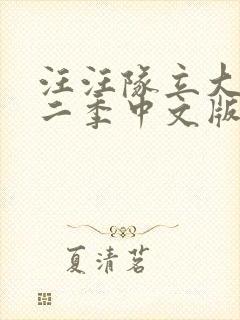 汪汪隊立大
二季中文版
夏清茗